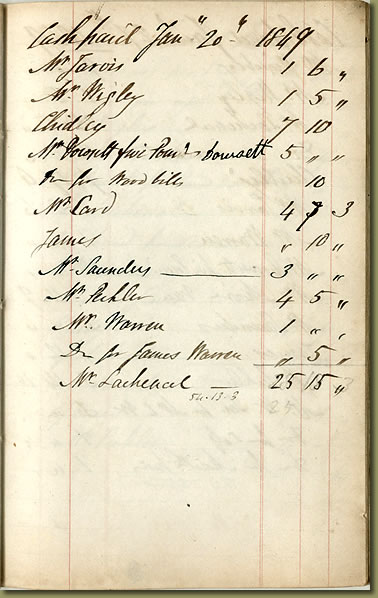 Cash paid Jan " 20 " 1849
Mr Jarvis 1 6 "
Mr Wigley 1 5 "
Chidley 7 10
Mr Dowsett five Pound Dowsett 5 " "
Do for Wood bills 10
Mr Card 4 7 3
James " 10 "
Mr Saunders — 3 " "
Mr 4 5 "
Mr. Warren 1 " "
Do for James Warren " 5 "
Mr Lachenal — 25 15 "
54.13.3